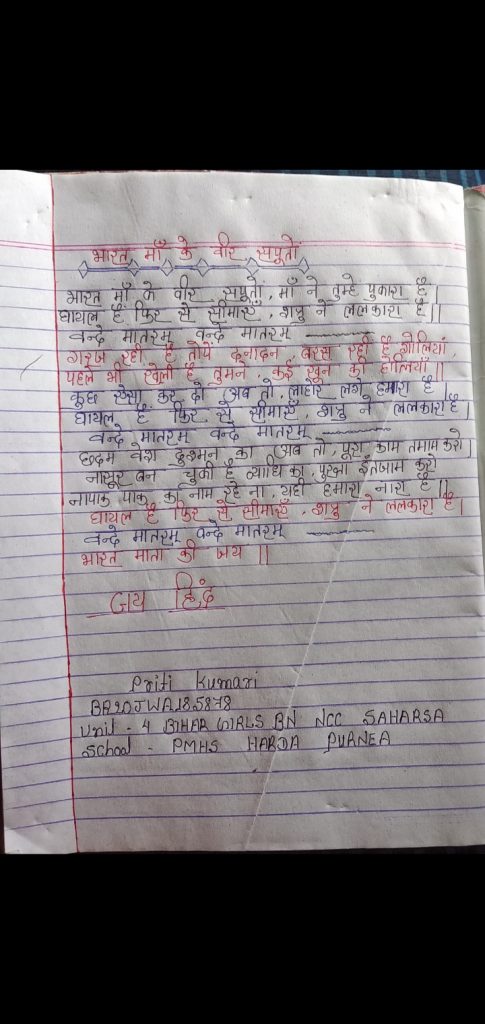 भारत माँ के वीर सपूतों
भारत माँ के वीर सपूतों, माँ ने तुम्हे पुकारा है।
घायल है फिर से सीमाएँ, शत्रु ने ललकारा है।।
वन्दे मातरम् वन्दे मातरम्
गरज रही है तोपें दनादन बरस रही है गोलियां,
पहले भी खेली है तुमने, कई खून की होलियाँ।।
कुछ ऐसा कर दो अब तो, लाहोर लगे हमारा है।
घायल है फिर से सीमाएँ, शत्रु ने ललकारा है।
वन्दे मातरम् वन्दे मातरम्
छदम वेश दुश्मन का अब तो, पूरा काम तमाम करो।
नासूर बन चुकी है व्याधि का, पुख्ता इंतजाम करो
नापाक पाक का नाम रहे ना, यही हमारा नारा है।।
घायल है फिर से सीमाएँ, शत्रु ने ललकारा है।
वन्दे मातरम् वन्दे मातरम्
भारत माता की जय।।
जय हिंद
Priti Kumari
BR20JWA185878
Unit - 4 BIHAR GIRLS BN NCC SAHARSA
School - PMHS HARDA PURNEA